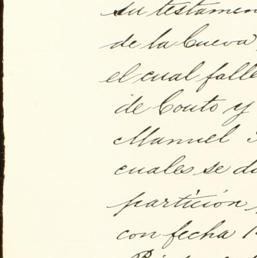 su testamen
de la Cueva
el cual falle
de Couto y
Manuel
cuales se d
partición
con fecha 1